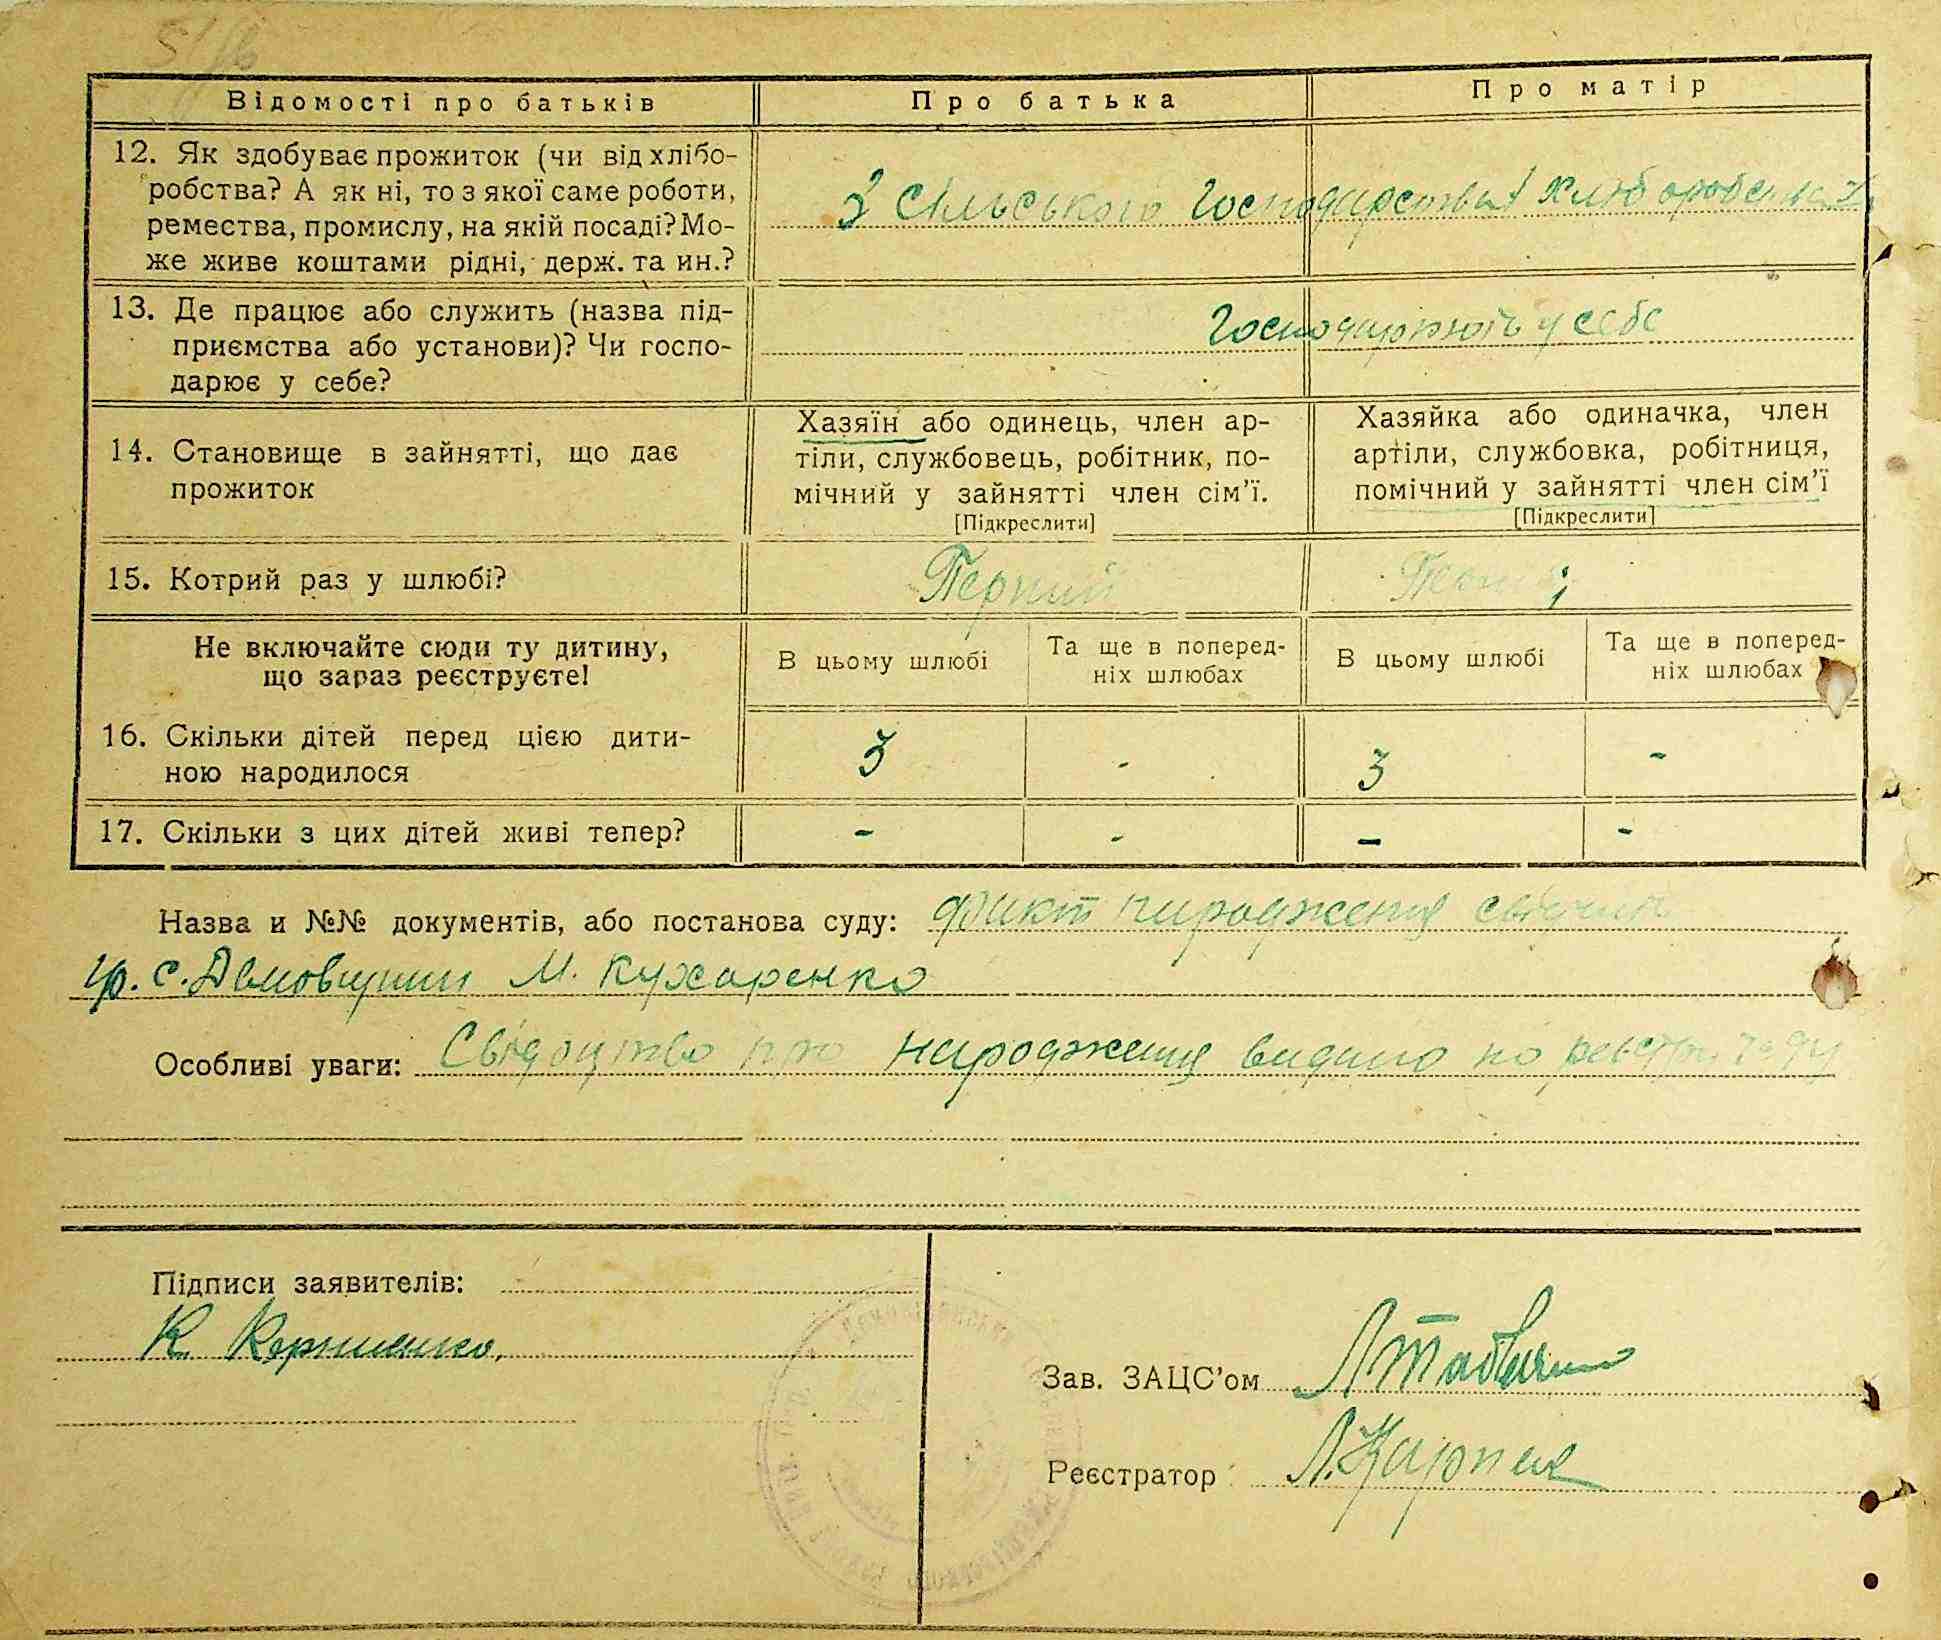 Відомості про батьків
Про батька
Про матір
12. Як здобуває прожиток (чи від хлібо-
робства? А як ні, то з якої саме роботи,
ремества, промислу, на якій посаді? Мо-
же живе коштами рідні, держ. та ин.?
З сільського господарства
13. Де працює або служить (назва під-
приємства або установи)? Чи госпо-
дарює у себе?
Господарюють у себе
14. Становище в зайнятті, що дає
прожиток
Хазяїн або одинець, член ар-
тіли, службовець, робітник, по-
мічний у зайнятті член сім'ї.
[Підкреслити]
Хазяйка або одиначка, член
артіли, службовка, робітниця,
помічний у зайнятті член сім'ї
[Підкреслити]
15. Котрий раз у шлюбі?
Не включайте сюди ту дитину,
що зараз реєструєте!
В цьому шлюбі
Та ще в поперед-
ніх шлюбах
В цьому шлюбі
Та ще в поперед-
ніх шлюбах
16. Скільки дітей перед цією дити-
ною народилося
3 - 3 -
17. Скільки з цих дітей живі тепер?
- - - -
Назва и №№ документів, або постанова суду: факт народження
гр. с. Демовщини М. Кухаренко
Особливі уваги: Свідоцтво про народження видано по реєстр
Підписи заявителів:
К.
Зав. ЗАЦС'ом
Реєстратор